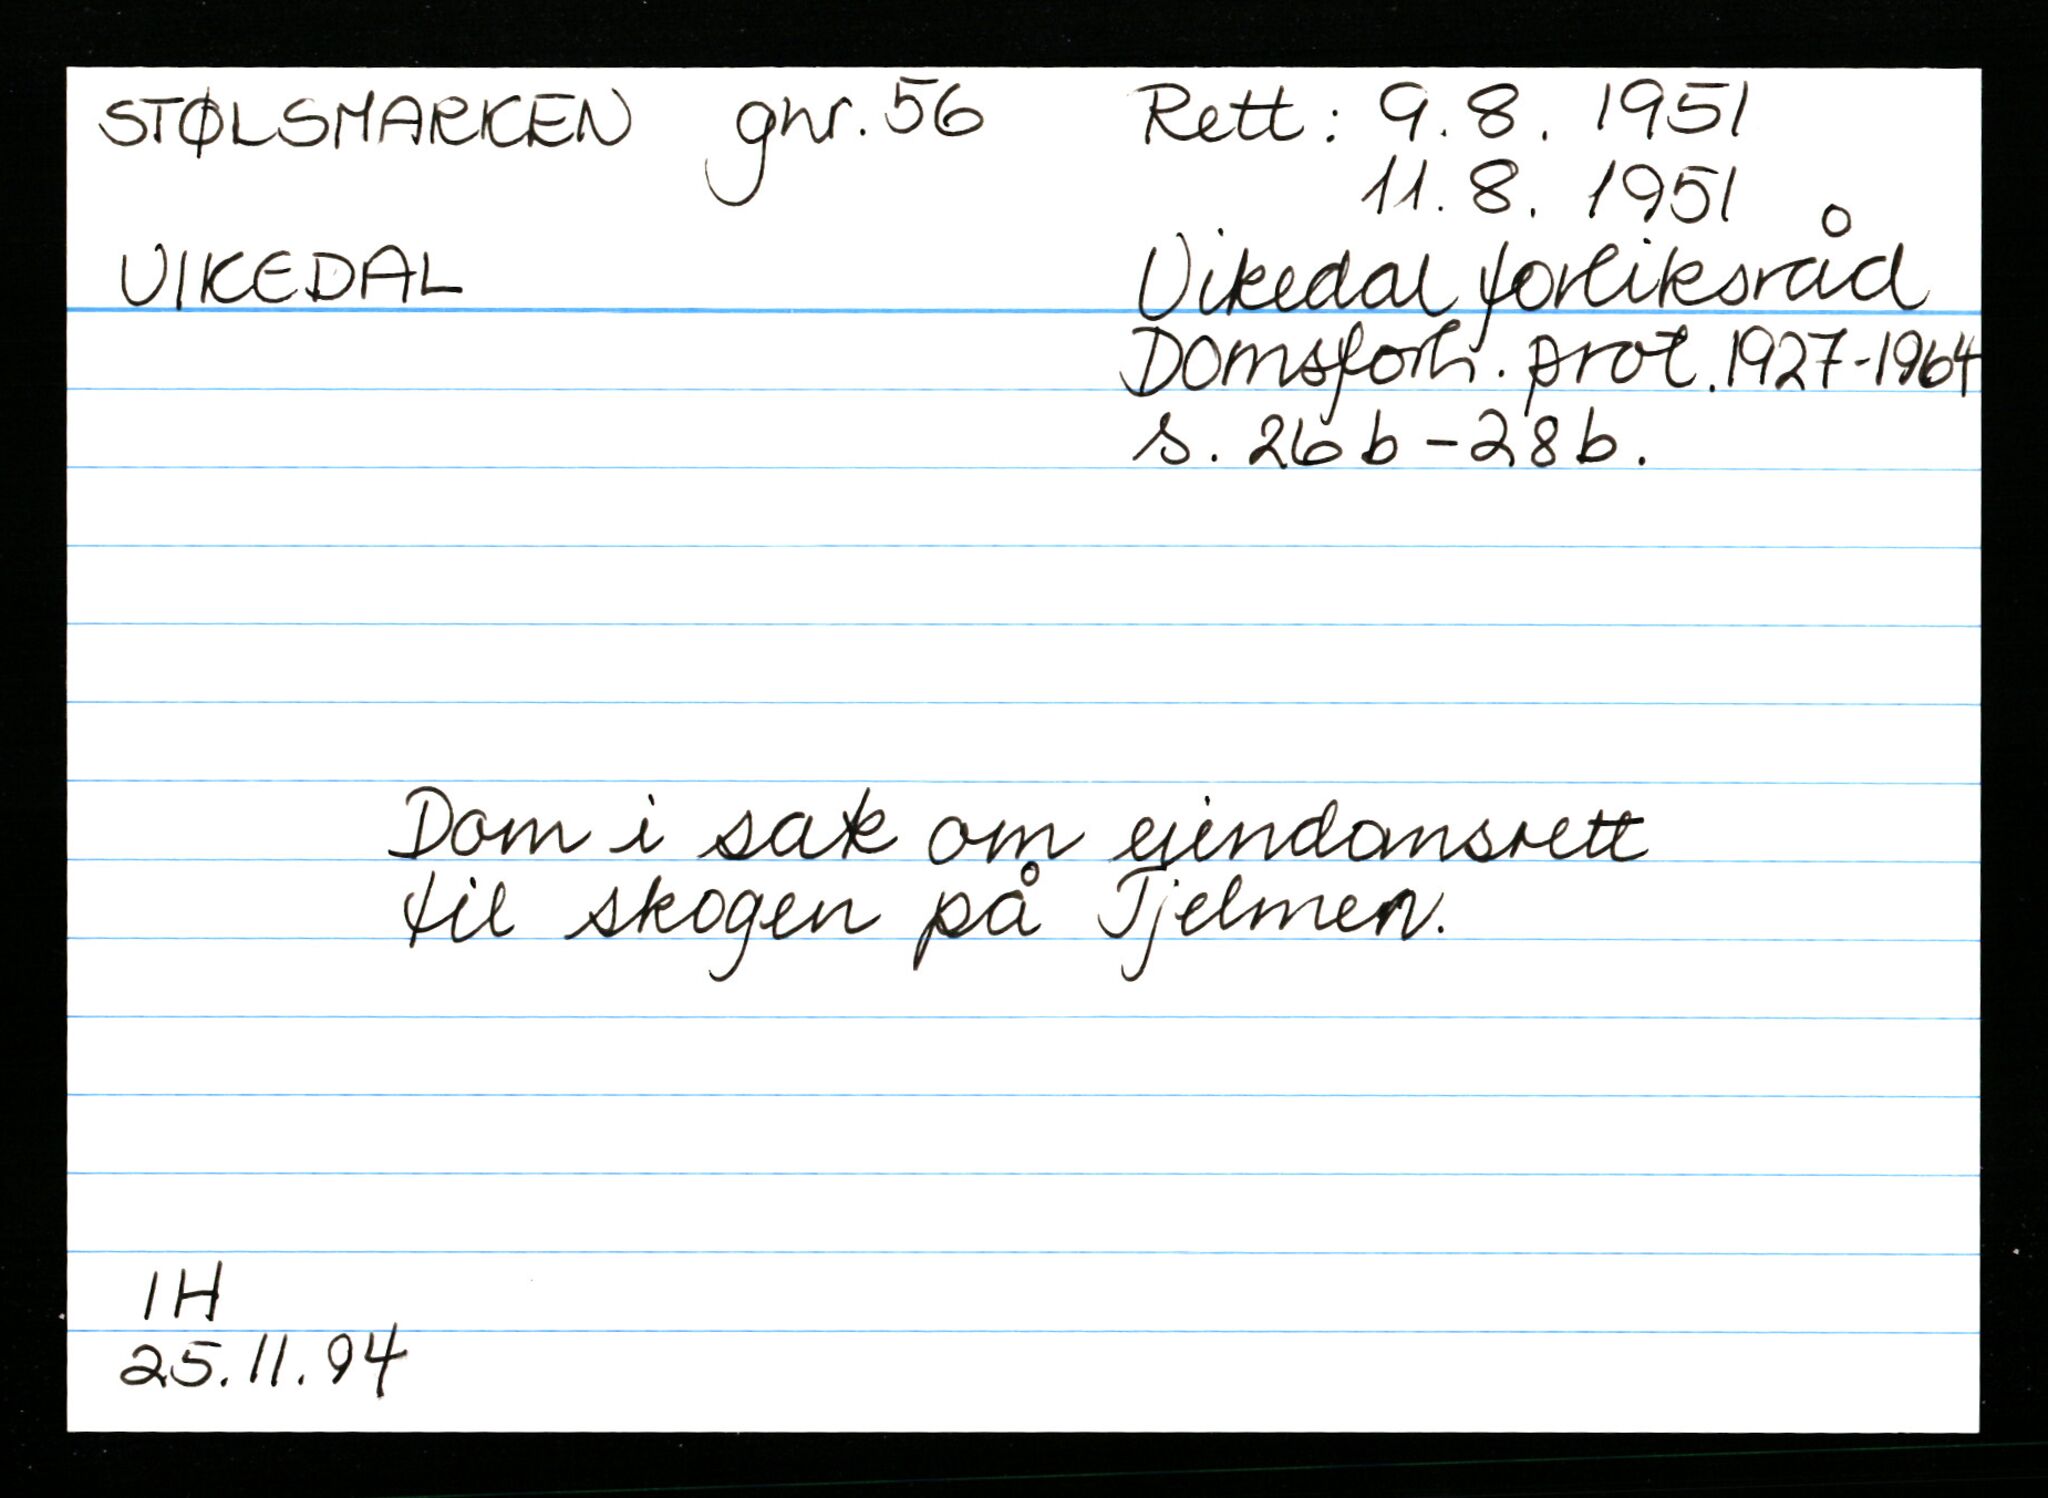 STØLSMARKEN gnr. 56 Rett: 9.8. 1951
11.8. 1951
VIKEDAL Vikedal forliksråd
Domsforh. prot. 1927-1964
s. 26b-28b.
Dom i sak om ejendomsrett
til skogen på Tjelmen.
IH
25.11.94